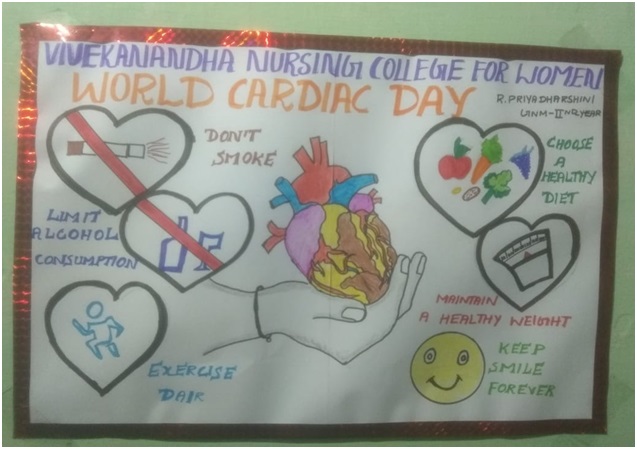 VIVEKANANDHA NURSING COLLEGE FOR WOMEN
WORLD CARDIAC DAY
R. PRIYADHARSHINI
DON'T
SMOKE
LIMIT
ALCOHOL
CONSUMPTION
EXERCISE
CHOOSE
A
HEALTHY
DIET
MAINTAIN
A HEALTHY WEIGHT
KEEP
SMILE
FOREVER